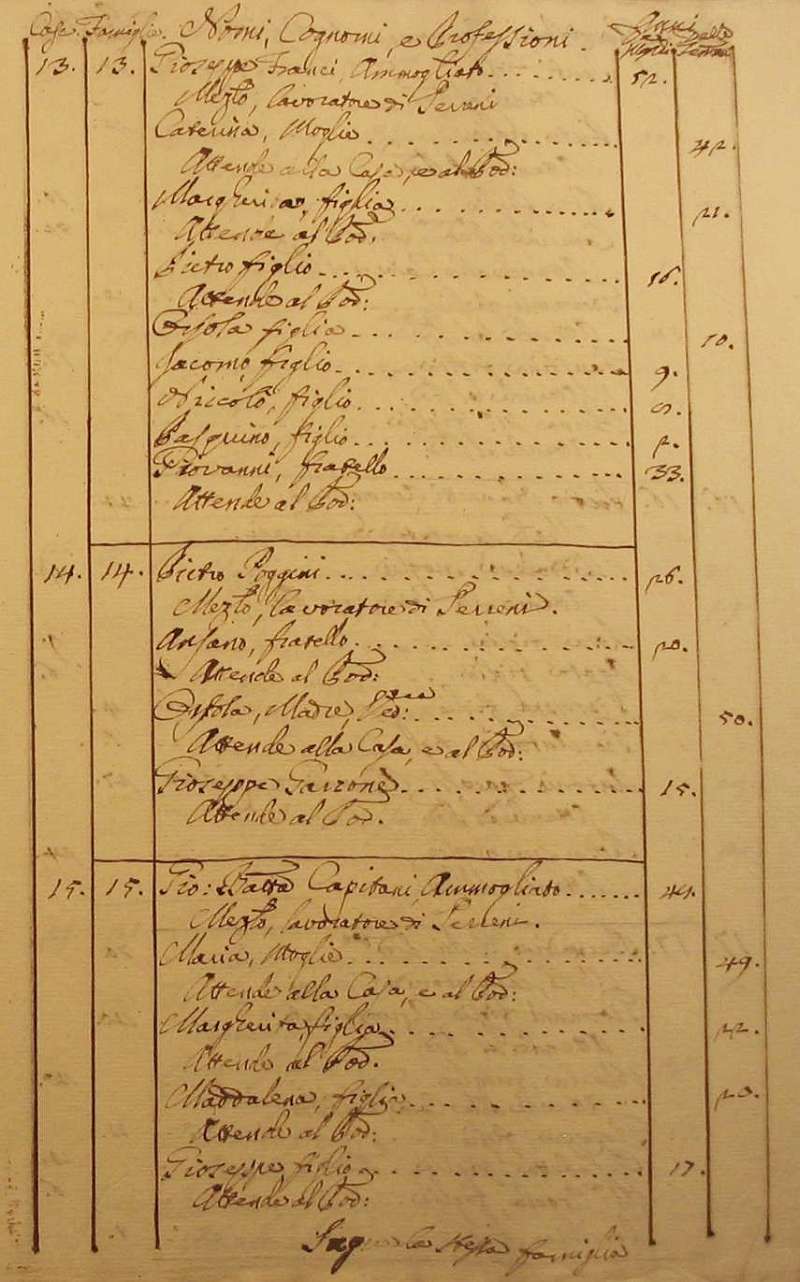 Case Famiglie Nomi, Cognomi, e Professioni. Anni
degli delle
Uomini Femine
13. 13. Gioseppe Franci, Ammogliato 52.
Mezz.o, lavoratore di Terreni
Caterina, Moglie 42.
Attende alla Casa, e al Pod:
Margherita, figlia 21.
Attende al Pod.
Pietro figlio 16.
Attende al Pod:
Orsola figlia 10.
Jacomo figlio 9.
Niccolò, figlio
Pasquino, figlio 2.
Giovanni, fratello 33.
Attende al Pod:
14. 14. Pietro Poggini 26.
Mezz.o, lavoratore di Terreni.
Ansano, fratello 20.
Attende al Pod:
Orsola, Madre, Ved:va 50.
Attende alla Casa, e al Pod:
Gioseppe Garzone 15.
Attende al Pod.
15. 15. Gio: Batta Capitani, Ammogliato 44.
Mezz.o, lavoratore di Terreni.
Maria, Moglie 49.
Attende alla Casa, e al Pod:
Margherita, figlia 22.
Attende al Pod.
Maddalena, figlia 20.
Attende al Pod:
Gioseppe figlio 17.
Attende al Pod:
la stessa famiglia